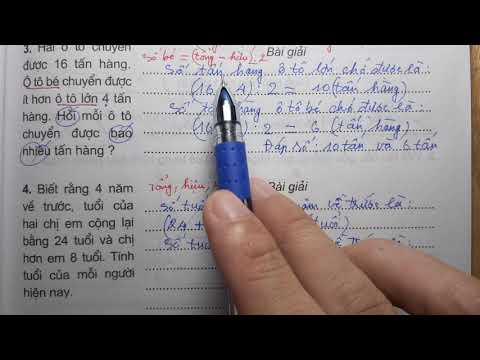 3. Hai ô tô chuyển
được 16 tấn hàng.
Ô tô bé chuyển được
ít hơn ô tô lớn 4 tấn
hàng. Hỏi mỗi ô tô
chuyển được bao
nhiêu tấn hàng ?
Số bé = (tổng - hiệu) : 2
Bài giải
Số tấn hàng ô tô lớn chở được là :
(16 4) : 2 = 10 (tấn hàng)
Số tấn hàng ô tô bé chở được là :
(16 : 2 = 6 (tấn hàng)
Đáp số : 10 tấn và 6 tấn
4. Biết rằng 4 năm
về trước, tuổi của
hai chị em cộng lại
bằng 24 tuổi và chị
hơn em 8 tuổi. Tính
tuổi của mỗi người
hiện nay.
Tổng, hiệu,
Bài giải
Số tuổi năm về trước là :
(24
Số tuổi về trước là :